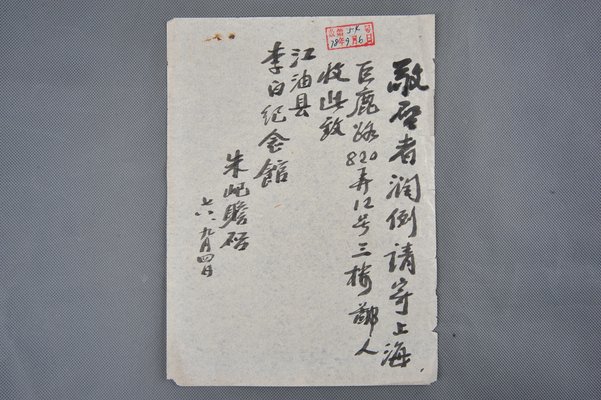 敬启者润例请寄上海
巨鹿路820弄12号三楼鄙人
收此致
江油县
李白纪念馆
朱屺瞻启
七八、九月四日